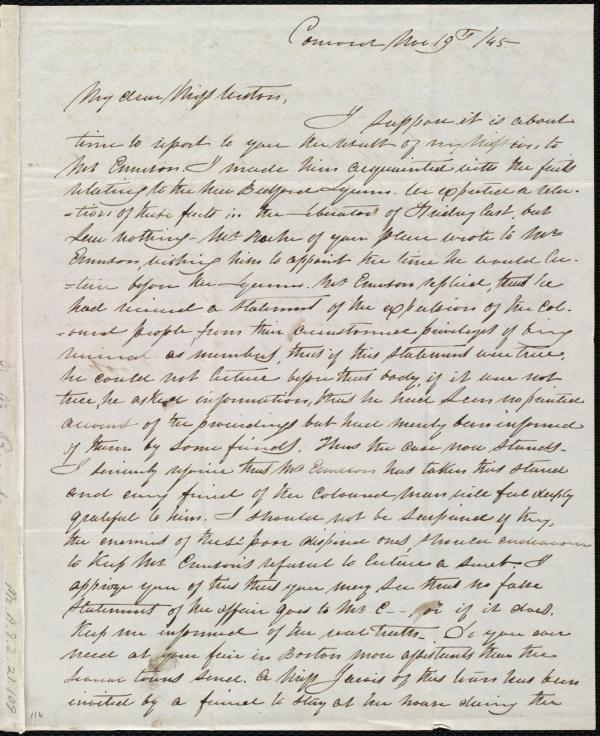 Concord Nov 19th /45
My dear Miss Weston,
I suppose it is about
time to report to you the result of my mission to
Mr Emerson. I made him acquainted with the facts
relating to the New Bedford Lyceum. We expected a rela-
-tion of these facts in the Liberator of Friday last, but
saw nothing - Mr of your place wrote to Mr
Emerson, wishing him to appoint the time he would lec-
-ture before the Lyceum. Mr Emerson replied, that he
had received a statement of the expulsion of the col-
-oured people from their accustomed privileges of being
received as members, that if this statement were true,
he could not lecture before that body, if it were not
true, he asked information, that he had seen no printed
account of the proceedings but had merely been informed
of them by some friends. Thus the case now stands -
I sincerely rejoice that Mr Emerson has taken this stand
and every friend of the coloured man will feel deeply
grateful to him. I should not be surprised if they,
the enemies of these poor despised ones, should endeavour
to keep Mr Emerson's refusal to lecture a secret. I
apprize you of this that you may see that no false
statement of the affair goes to Mr E--, or if it does,
keep me informed of the real truth - Do you ever
need at your fair in Boston more assistants than the
several towns send. A Miss Jarvis of this town has been
invited by a friend to stay at her house during the
116
Ms A.9.2.21.109